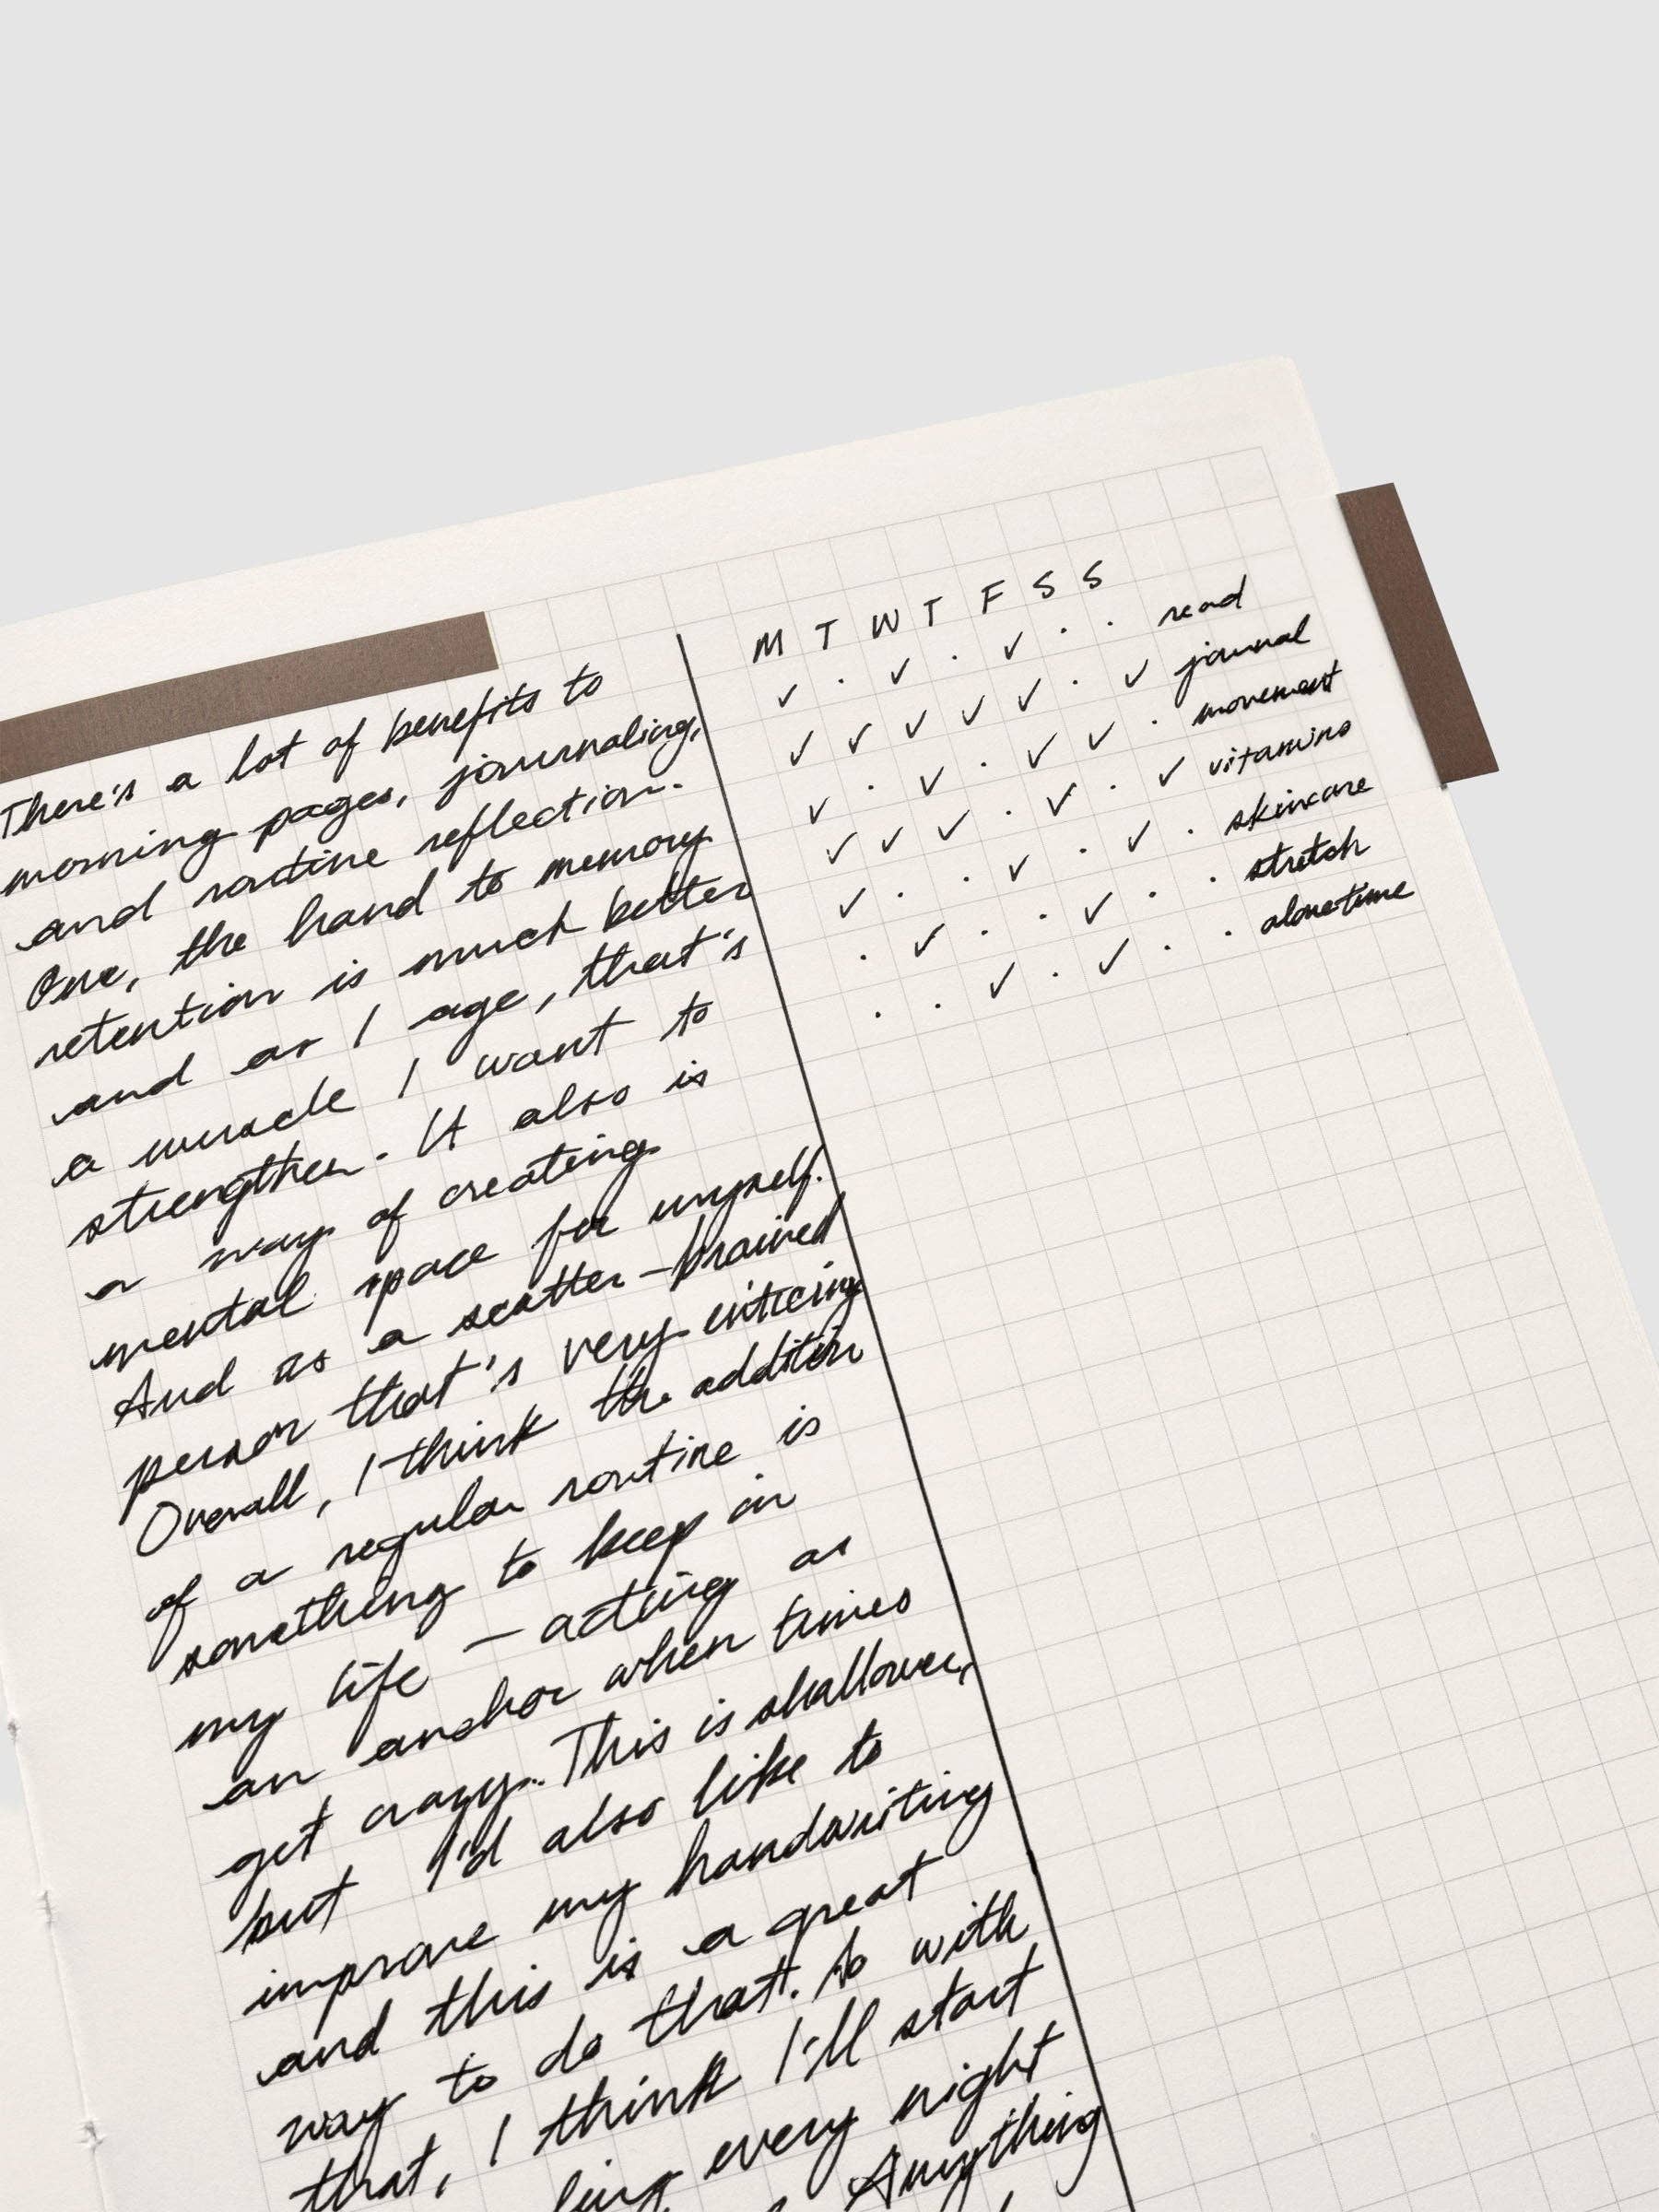 There's a lot of benefits to
morning pages, journaling,
and routine reflection.
One, the hand to memory
retention is much better
and as I age, that's
a muscle I want to
strengthen. It also is
a way of creating
mental space for myself.
And as a scatter-brained
person that's very enticing
Overall, I think the addition
of a regular routine is
something to keep in
my life — acting as
an anchor when times
get crazy. This is shallower,
but I'd also like to
improve my handwriting
and this is a great
way to do that. So with
that, I think I'll start
every night
Anything
M T W T F S S
✓ · ✓ · ✓ · · read
✓ ✓ ✓ ✓ ✓ · ✓ journal
✓ · ✓ · ✓ ✓ · movement
✓ ✓ ✓ · ✓ · ✓ vitamins
✓ · · ✓ · ✓ · skincare
· ✓ · · ✓ · · stretch
· · ✓ · ✓ · · alone time